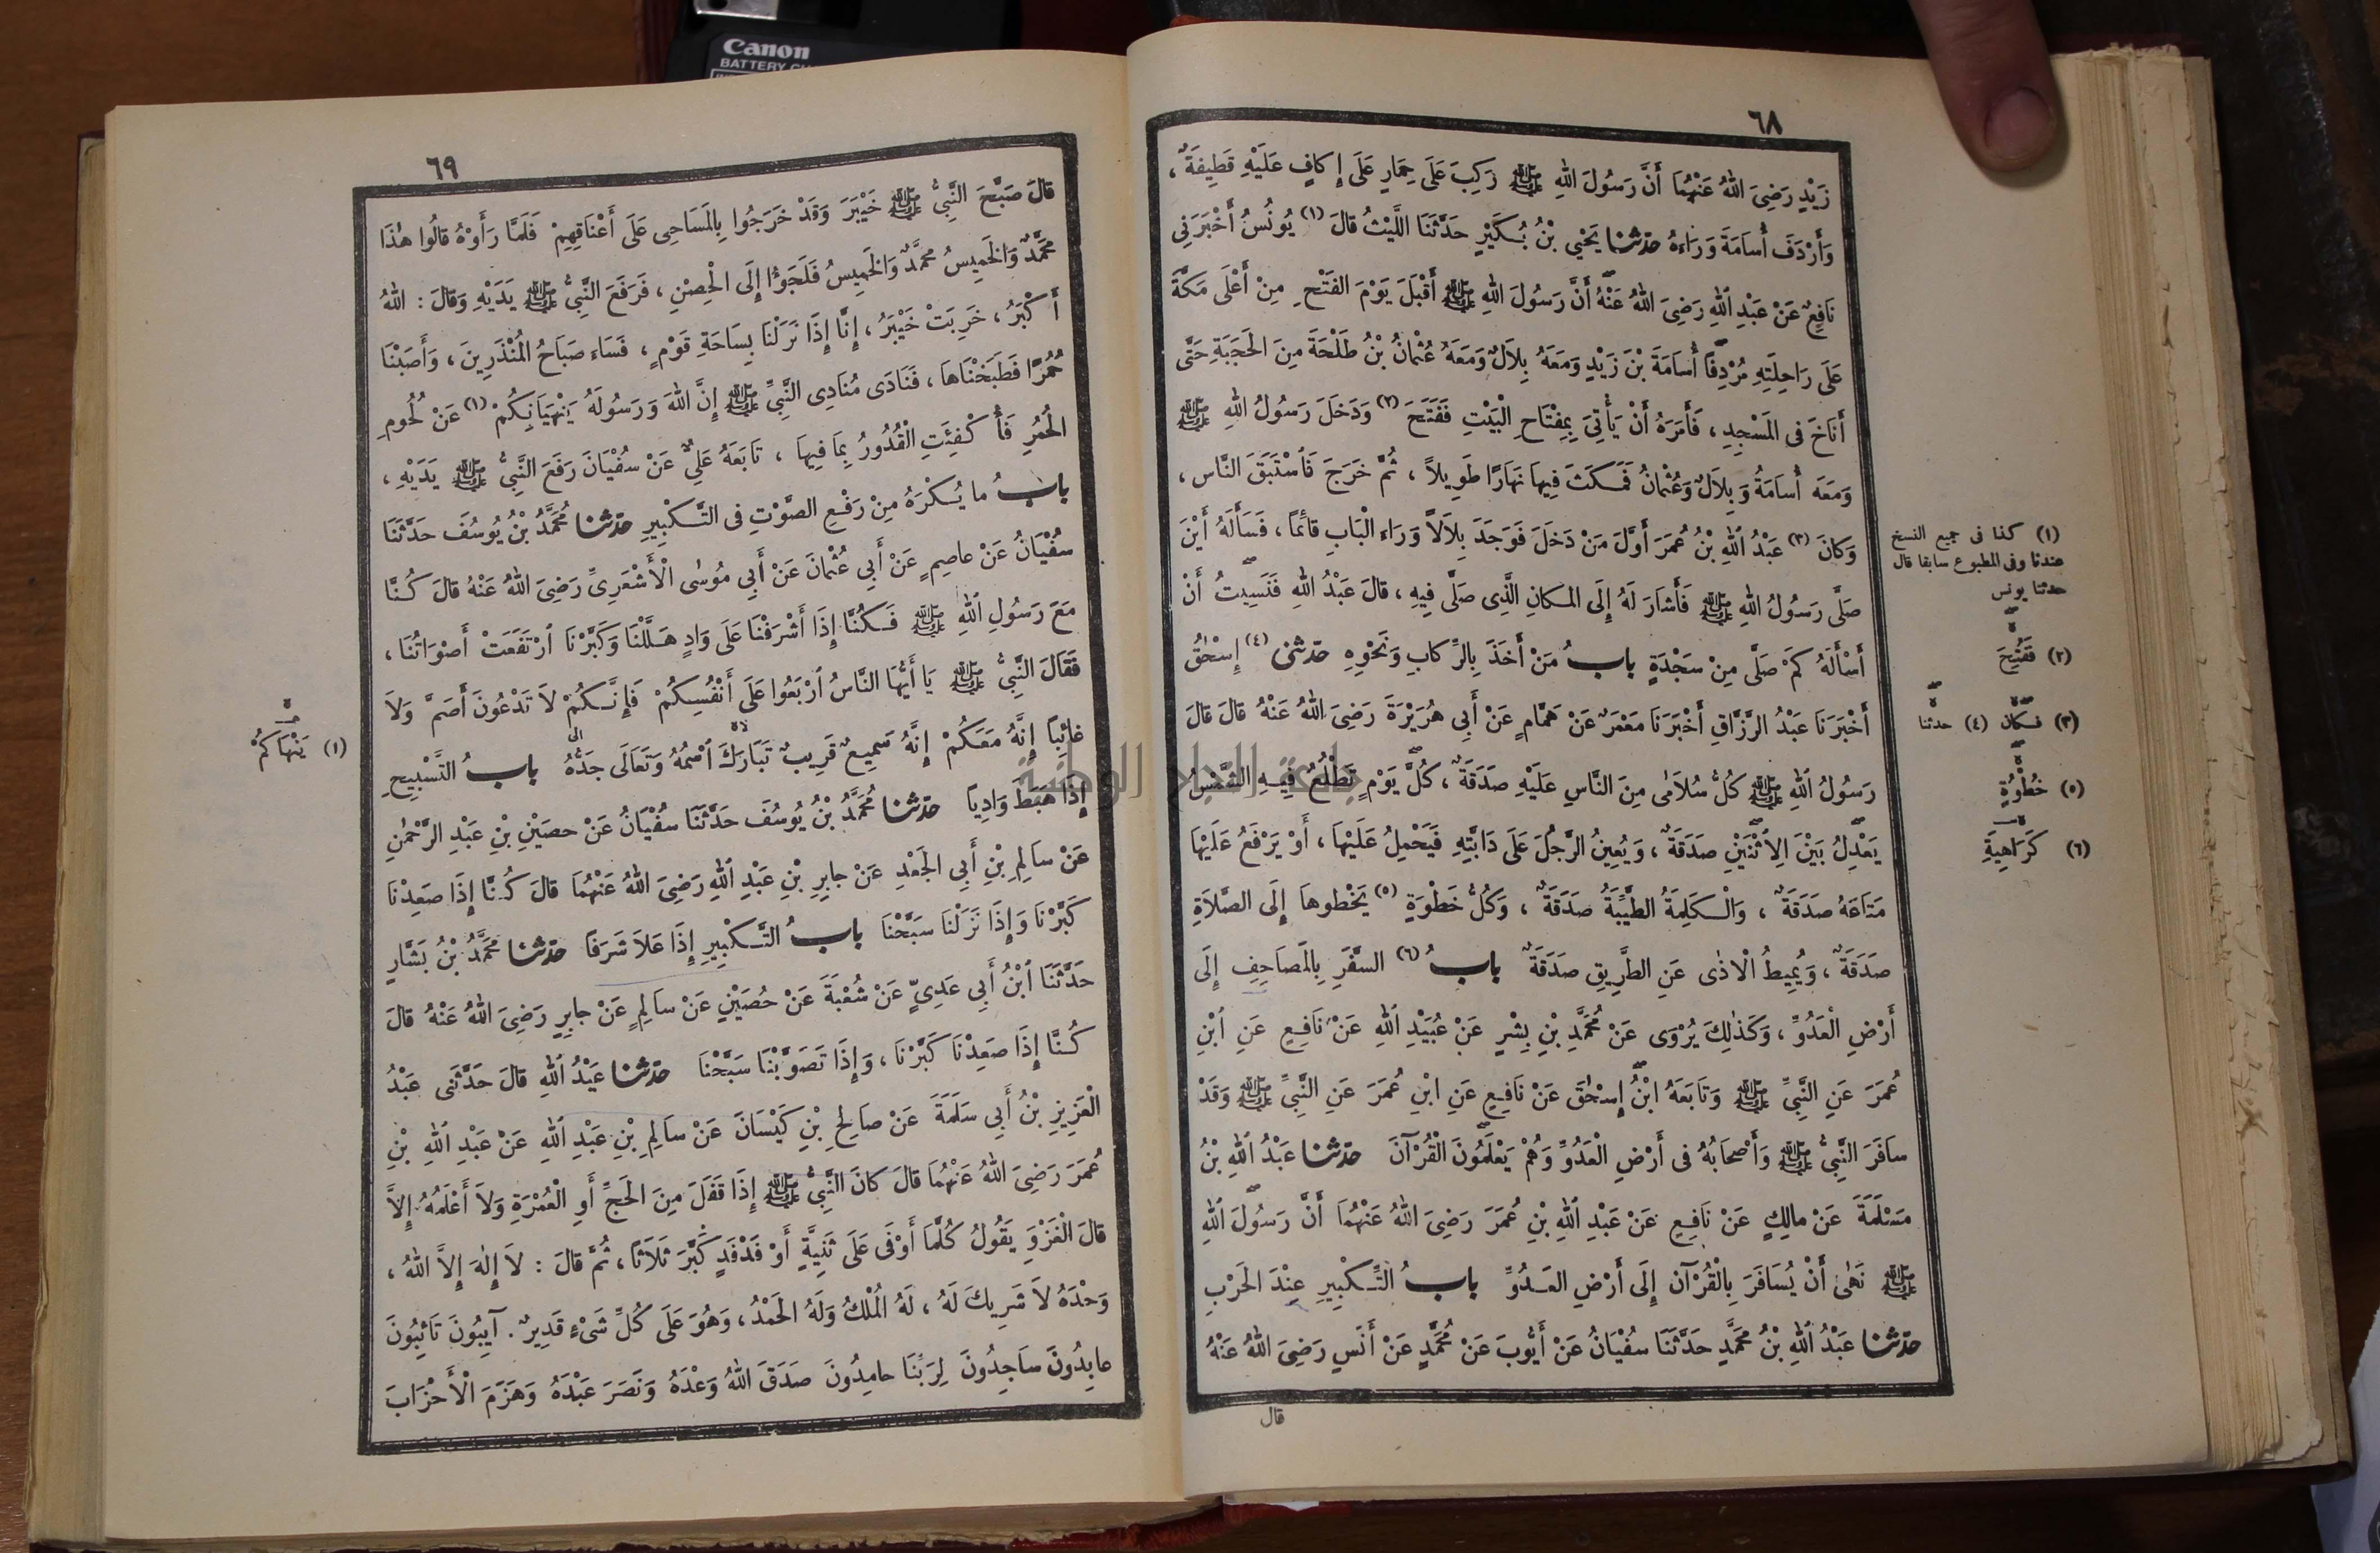 Canon
BATTERY
٦٨
زَيْدٍ رَضِيَ اللهُ عَنْهُمَا أَنَّ رَسُولَ اللهِ ﷺ رَكِبَ عَلَى حِمَارٍ عَلَى إِكافٍ عَلَيْهِ قَطِيفَةٌ ،
وَأَرْدَفَ أُسَامَةَ وَرَاءَهُ حدّثنا يَحْيَى بْنُ بُكَيْرٍ حَدَّثَنَا اللَّيْثُ قالَ (١) يُونُسُ أَخْبَرَنِي
نَافِعٌ عَنْ عَبْدِ اللهِ رَضِيَ اللهُ عَنْهُ أَنَّ رَسُولَ اللهِ ﷺ أَقْبَلَ يَوْمَ الفَتْحِ مِنْ أَعْلَى مَكَّةَ
عَلَى رَاحِلَتِهِ مُرْدِفًا أُسَامَةَ بْنَ زَيْدٍ وَمَعَهُ بِلاَلٌ وَمَعَهُ عُثْمانُ بْنُ طَلْحَةَ مِنَ الحَجَبَةِ حَتَّى
أَنَاخَ فِى المَسْجِدِ ، فَأَمَرَهُ أَنْ يَأْتِيَ بِمِفْتَاحِ الْبَيْتِ فَفَتَحَ (٢) وَدَخَلَ رَسُولُ اللهِ ﷺ
وَمَعَهُ أُسَامَةُ وَبِلاَلٌ وَعُثْمانُ فَمَكَثَ فِيهَا نَهَارًا طَوِيلاً ، ثُمَّ خَرَجَ فَاسْتَبَقَ النَّاس ،
وَكانَ (٣) عَبْدُ اللهِ بْنُ عُمَرَ أَوَّلَ مَنْ دَخَلَ فَوَجَدَ بِلاَلاً وَرَاءَ الْبَابِ قائِمًا ، فَسَأَلَهُ أَيْنَ
صَلَّى رَسُولُ اللهِ ﷺ فَأَشَارَ لَهُ إِلَى المَكانِ الَّذِى صَلَّى فِيهِ ، قالَ عَبْدُ اللهِ فَنَسِيتُ أَنْ
أَسْأَلَهُ كَمْ صَلَّى مِنْ سَجْدَةٍ بابُ مَنْ أَخَذَ بِالرِّكابِ وَنَحْوِهِ حدّثنى (٤) إِسْحٰقُ
أَخْبَرَنَا عَبْدُ الرَّزَّاقِ أَخْبَرَنَا مَعْمَرٌ عَنْ هَمَّامٍ عَنْ أَبِى هُرَيْرَةَ رَضِيَ اللهُ عَنْهُ قالَ قالَ
رَسُولُ اللهِ ﷺ كُلُّ سُلاَمٰى مِنَ النَّاسِ عَلَيْهِ صَدَقَةٌ ، كُلَّ يَوْمٍ تَطْلُعُ فِيهِ الشَّمْسُ
يَعْدِلُ بَيْنَ الِاثْنَيْنِ صَدَقَةٌ ، وَيُعِينُ الرَّجُلَ عَلَى دَابَّتِهِ فَيَحْمِلُ عَلَيْهَا ، أَوْ يَرْفَعُ عَلَيْهَا
مَتَاعَهُ صَدَقَةٌ ، وَالْكَلِمَةُ الطَّيِّبَةُ صَدَقَةٌ ، وَكُلُّ خَطْوَةٍ (٥) يَخْطُوهَا إِلَى الصَّلاَةِ
صَدَقَةٌ ، وَيُمِيطُ الْاذٰى عَنِ الطَّرِيقِ صَدَقَةٌ بابُ (٦) السَّفَرِ بِالْمَصَاحِفِ إِلَى
أَرْضِ الْعَدُوِّ ، وَكَذٰلِكَ يُرْوَى عَنْ مُحَمَّدِ بْنِ بِشْرٍ عَنْ عُبَيْدِ اللهِ عَنْ نَافِعٍ عَنِ ابْنِ
عُمَرَ عَنِ النَّبِيِّ ﷺ وَتَابَعَهُ ابْنُ إِسْحٰقَ عَنْ نَافِعٍ عَنِ ابْنِ عُمَرَ عَنِ النَّبِيِّ ﷺ وَقَدْ
سافَرَ النَّبِيُّ ﷺ وَأَصْحَابُهُ فى أَرْضِ الْعَدُوِّ وَهُمْ يَعْلَمُونَ الْقُرْآنَ حدّثنا عَبْدُ اللهِ بْنُ
مَسْلَمَةَ عَنْ مالِكٍ عَنْ نَافِعٍ عَنْ عَبْدِ اللهِ بْنِ عُمَرَ رَضِيَ اللهُ عَنْهُمَا أَنَّ رَسُولَ اللهِ
ﷺ نَهٰى أَنْ يُسَافَرَ بِالْقُرْآنِ إِلَى أَرْضِ العَدُوِّ بابُ التَّكْبِيرِ عِنْدَ الحَرْبِ
حدّثنا عَبْدُ اللهِ بْنُ مُحَمَّدٍ حَدَّثَنَا سُفْيَانُ عَنْ أَيُّوبَ عَنْ مُحَمَّدٍ عَنْ أَنَسٍ رَضِيَ اللهُ عَنْهُ
قال
(١) كذا فى جميع النسخ
عندنا وفى المطبوع سابقا قال
حدثنا يونس
(٢) فَفُتِحَ
(٣) فكان (٤) حدثنا
(٥) خُطْوَةٍ
(٦) كَرَاهِيَةِ
٦٩
قالَ صَبَّحَ النَّبِيُّ ﷺ خَيْبَرَ وَقَدْ خَرَجُوا بِالمَسَاحِى عَلَى أَعْنَاقِهِمْ فَلَمَّا رَأَوْهُ قالُوا هٰذَا
مُحَمَّدٌ وَالخَمِيسُ مُحَمَّدٌ وَالخَمِيسُ فَلَجَؤُا إِلَى الْحِصْنِ ، فَرَفَعَ النَّبِيُّ ﷺ يَدَيْهِ وَقالَ : اللهُ
أَكْبَرُ ، خَرِبَتْ خَيْبَرُ ، إِنَّا إِذَا نَزَلْنَا بِسَاحَةِ قَوْمٍ ، فَسَاءَ صَبَاحُ المُنْذَرِينَ ، وَأَصَبْنَا
حُمُرًا فَطَبَخْنَاهَا ، فَنَادَى مُنَادِى النَّبِيِّ ﷺ إِنَّ اللهَ وَرَسُولَهُ يَنْهَيَانِكُمْ (١) عَنْ لُحُومِ
الْحُمُرِ فَأُكْفِئَتِ الْقُدُورُ بِمَا فِيهَا ، تَابَعَهُ عَلِيٌّ عَنْ سُفْيَانَ رَفَعَ النَّبِيُّ ﷺ يَدَيْهِ ،
بابُ ما يُكْرَهُ مِنْ رَفْعِ الصَّوْتِ فِى التَّكْبِيرِ حدّثنا مُحَمَّدُ بْنُ يُوسُفَ حَدَّثَنَا
سُفْيَانُ عَنْ عاصِمٍ عَنْ أَبِي عُثْمانَ عَنْ أَبِي مُوسٰى الْأَشْعَرِيِّ رَضِيَ اللهُ عَنْهُ قالَ كُنَّا
مَعَ رَسُولِ اللهِ ﷺ فَكُنَّا إِذَا أَشْرَفْنَا عَلَى وَادٍ هَلَّلْنَا وَكَبَّرْنَا ارْتَفَعَتْ أَصْوَاتُنَا ،
فَقَالَ النَّبِيُّ ﷺ يَا أَيُّهَا النَّاسُ ارْبَعُوا عَلَى أَنْفُسِكُمْ فَإِنَّكُمْ لاَ تَدْعُونَ أَصَمَّ وَلاَ
غائِبًا إِنَّهُ مَعَكُمْ إِنَّهُ سَمِيعٌ قَرِيبٌ تَبَارَكَ اسْمُهُ وَتَعَالَى جَدُّهُ بابُ التَّسْبِيحِ
إِذَا هَبَطَ وَادِيًا حدّثنا مُحَمَّدُ بْنُ يُوسُفَ حَدَّثَنَا سُفْيَانُ عَنْ حصَيْنِ بْنِ عَبْدِ الرَّحْمٰنِ
عَنْ سَالِمِ بْنِ أَبِي الجَعْدِ عَنْ جابِرِ بْنِ عَبْدِ اللهِ رَضِيَ اللهُ عَنْهُمَا قالَ كُنَّا إِذَا صَعِدْنَا
كَبَّرْنَا وَإِذَا نَزَلْنَا سَبَّحْنَا بابُ التَّكْبِيرِ إِذَا عَلاَ شَرَفًا حدّثنا مُحَمَّدُ بْنُ بَشَّارٍ
حَدَّثَنَا ابْنُ أَبِي عَدِيٍّ عَنْ شُعْبَةَ عَنْ حُصَيْنٍ عَنْ سَالِمٍ عَنْ جابِرٍ رَضِيَ اللهُ عَنْهُ قالَ
كُنَّا إِذَا صَعِدْنَا كَبَّرْنَا ، وَإِذَا تَصَوَّبْنَا سَبَّحْنَا حدّثنا عَبْدُ اللهِ قالَ حَدَّثَنى عَبْدُ
الْعَزِيزِ بْنُ أَبِي سَلَمَةَ عَنْ صَالِحِ بْنِ كَيْسَانَ عَنْ سَالِمِ بْنِ عَبْدِ اللهِ عَنْ عَبْدِ اللهِ بْنِ
عُمَرَ رَضِيَ اللهُ عَنْهُمَا قالَ كانَ النَّبِيُّ ﷺ إِذَا قَفَلَ مِنَ الحَجِّ أَوِ الْعُمْرَةِ وَلاَ أَعْلَمُهُ إِلاَّ
قالَ الْغَزْوِ يَقُولُ كُلَّمَا أَوْفَى عَلَى ثَنِيَّةٍ أَوْ فَدْفَدٍ كَبَّرَ ثَلاَثًا ، ثُمَّ قالَ : لاَ إِلٰهَ إِلاَّ اللهُ ،
وَحْدَهُ لاَ شَرِيكَ لَهُ ، لَهُ المُلْكُ وَلَهُ الحَمْدُ ، وَهُوَ عَلَى كُلِّ شَىْءٍ قَدِيرٌ . آيِبُونَ تَائِبُونَ
عابِدُونَ سَاجِدُونَ لِرَبِّنَا حامِدُونَ صَدَقَ اللهُ وَعْدَهُ وَنَصَرَ عَبْدَهُ وَهَزَمَ الْأَحْزَابَ
(١) يَنْهَاكُمْ
جامعة النجاح الوطنية